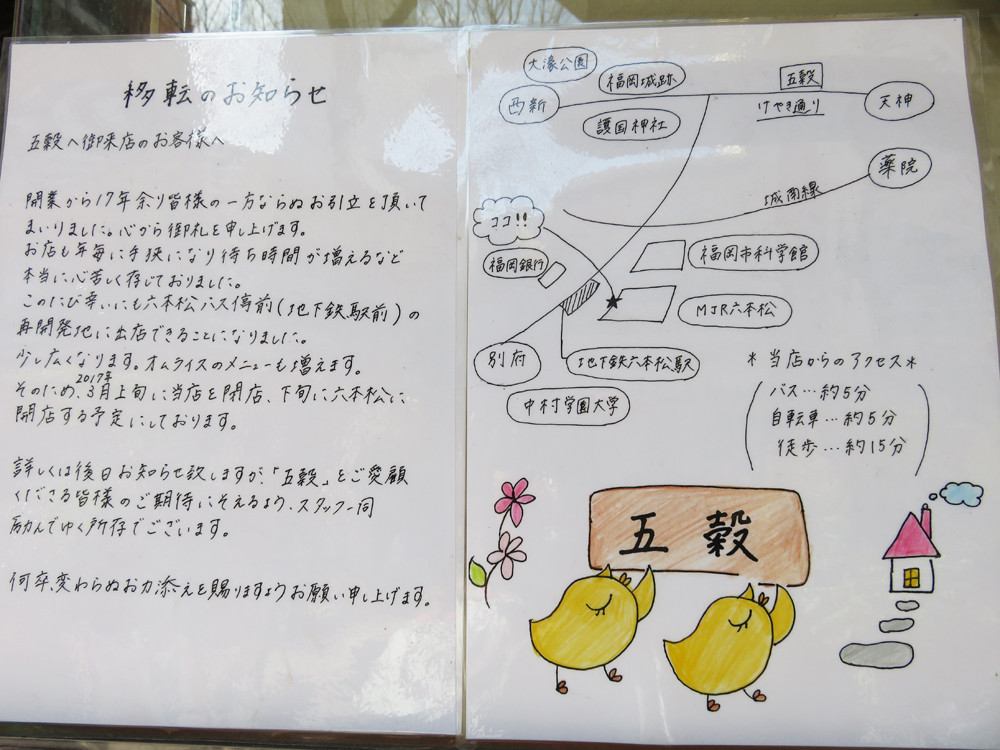 移転のお知らせ
五穀へ御来店のお客様へ
開業から17年余り皆様の一方ならぬお引立を頂いて
まいりました。心から御礼を申し上げます。
お店も年毎に手狭になり待ち時間が増えるなど
本当に心苦しく存じておりました。
このたび幸いにも六本松バス停前(地下鉄駅前)の
再開発地に出店できることになりました。
少し広くなります。オムライスのメニューも増えます。
そのため、2017年3月上旬に当店を閉店、下旬に六本松に
開店する予定にしております。
詳しくは後日お知らせ致しますが、「五穀」をご愛顧
くださる皆様のご期待にそえるよう、スタッフ一同
励んでゆく所存でございます。
何卒、変わらぬお力添えを賜りますようお願い申し上げます。
大濠公園
福岡城跡
五穀
西新
けやき通り
天神
護国神社
薬院
城南線
ココ!!
福岡銀行
福岡市科学館
MJR六本松
別府
地下鉄六本松駅
中村学園大学
*当店からのアクセス*
バス…約5分
自転車…約5分
徒歩…約15分
五穀